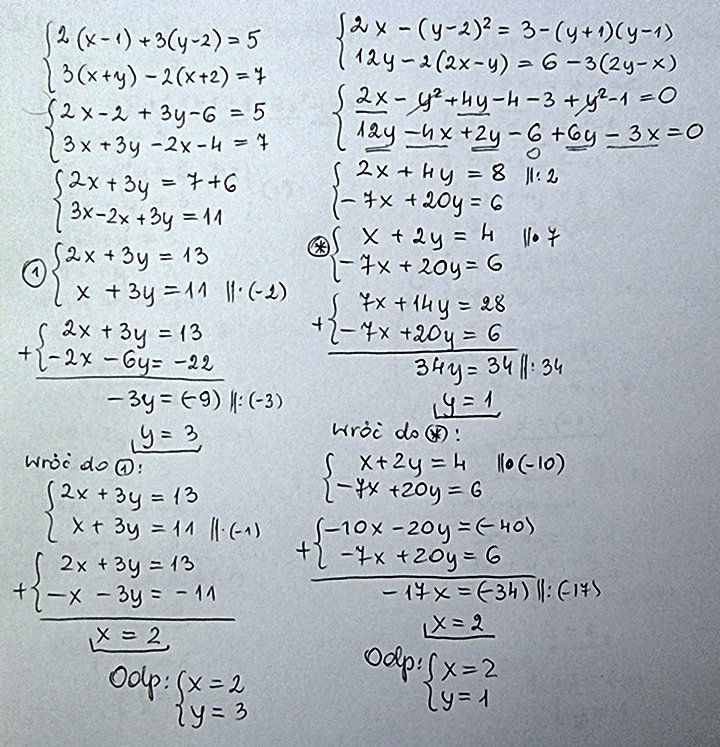 {2(x-1)+3(y-2)=5
{3(x+y)-2(x+2)=7
{2x-2+3y-6=5
{3x+3y-2x-4=7
{2x+3y=7+6
{3x-2x+3y=11
① {2x+3y=13
{x+3y=11 ||·(-2)
+ {2x+3y=13
{-2x-6y=-22
-3y=(-9) ||:(-3)
y=3
wróć do ①:
{2x+3y=13
{x+3y=11 ||·(-1)
+ {2x+3y=13
{-x-3y=-11
x=2
Odp: {x=2
{y=3
{2x-(y-2)²=3-(y+1)(y-1)
{12y-2(2x-y)=6-3(2y-x)
{2x-y²+4y-4-3+y²-1=0
{12y-4x+2y-6+6y-3x=0
{2x+4y=8 ||:2
{-7x+20y=6
⊛ {x+2y=4 ||·7
{-7x+20y=6
+ {7x+14y=28
{-7x+20y=6
34y=34 ||:34
y=1
wróć do ⊛:
{x+2y=4 ||·(-10)
{-7x+20y=6
+ {-10x-20y=(-40)
{-7x+20y=6
-17x=(-34) ||:(-17)
x=2
Odp: {x=2
{y=1